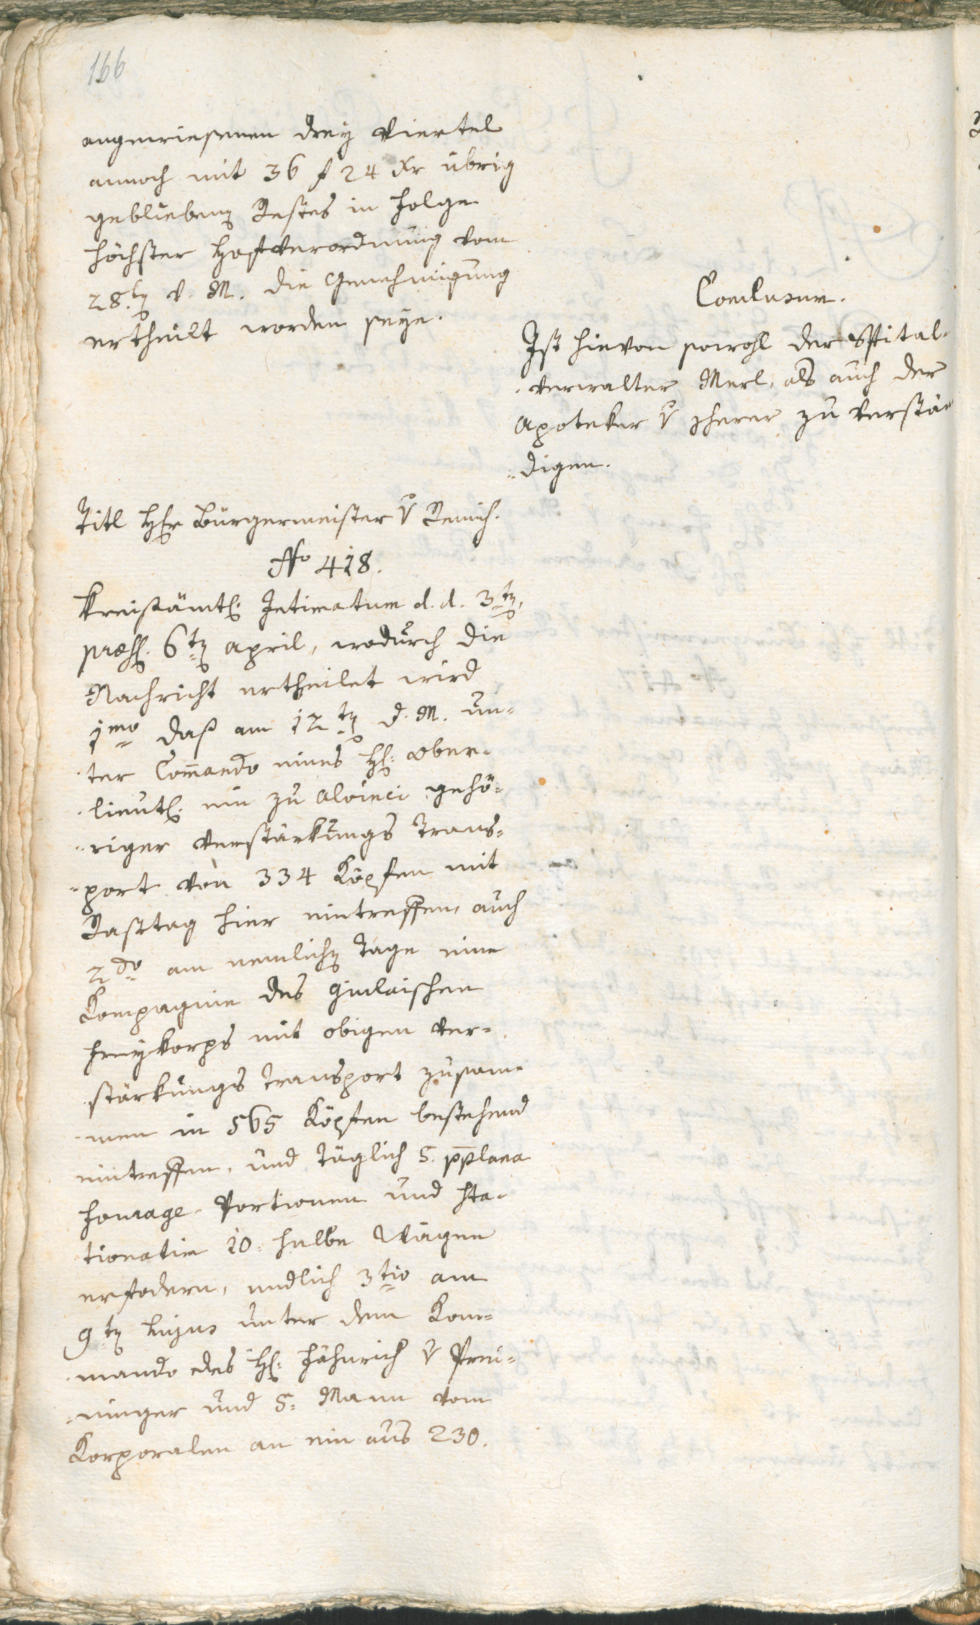 166
angewiesenen drey Viertel
annoch mit 36 f 24 Kr übrig
gebliebenen Restes in Folge
höchster Hofverordnung vom
28.ten v. M. die Genehmigung
ertheilt worden seye.
Conclusum.
Ist hievon sowohl der Spital-
verwalter Merl, als auch der
Apoteker v zu verstän
digen.
Titl Hr Bürgermeister v Remich.
No 418.
Kreisämtl. Intimatum d. d. 3ten,
praes. 6ten April, wodurch die
Nachricht ertheilet wird
1mo daß am 12ten d. M. un-
ter Commando eines H: Ober-
lieut: ein zu Alvinci gehö-
riger Verstärkungs Trans-
port von 334 Köpfen mit
Rasttag hier eintreffen, auch
2do am nemlichen Tage eine
Kompagnie des Giulaischen
Freykorps mit obigen Ver-
stärkungs Transport zusam-
men in 565 Köpfen bestehend
eintreffen, und täglich 5.
Fourage-Portionen und Sta-
tionatim 10: halbe Wägen
erfodern, endlich 3tio am
9ten hujus unter dem Kom-
mando des H: Fähnrich v Prei-
ninger und 5: Mann vom
Korporalen an ein aus 230.